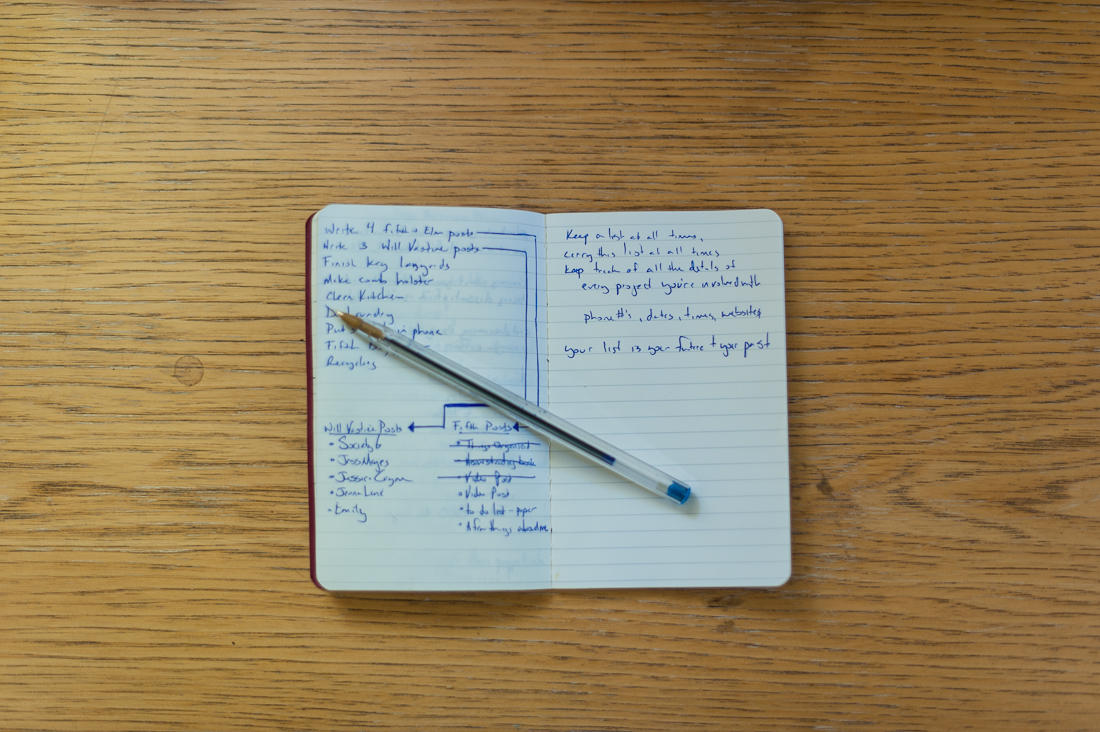 Write 4 fifth + Elm posts
Write 3 Will Vastine posts
Finish key lanyards
Make comb holster
Clean Kitchen
Laundry
Put in phone
Fifth
Recycling
Will Vastine Posts
• Society6
• Jess Mayes
• Jessie
• Jenna Lane
• Emily
Fifth Posts
• Things Organized
• Video Post
• Video Post
• to do list - paper
• A few things
Keep a list at all times,
carry this list at all times
keep track of all the details of
every project you're involved with
phone #'s, dates, times, websites
your list is your future + your past